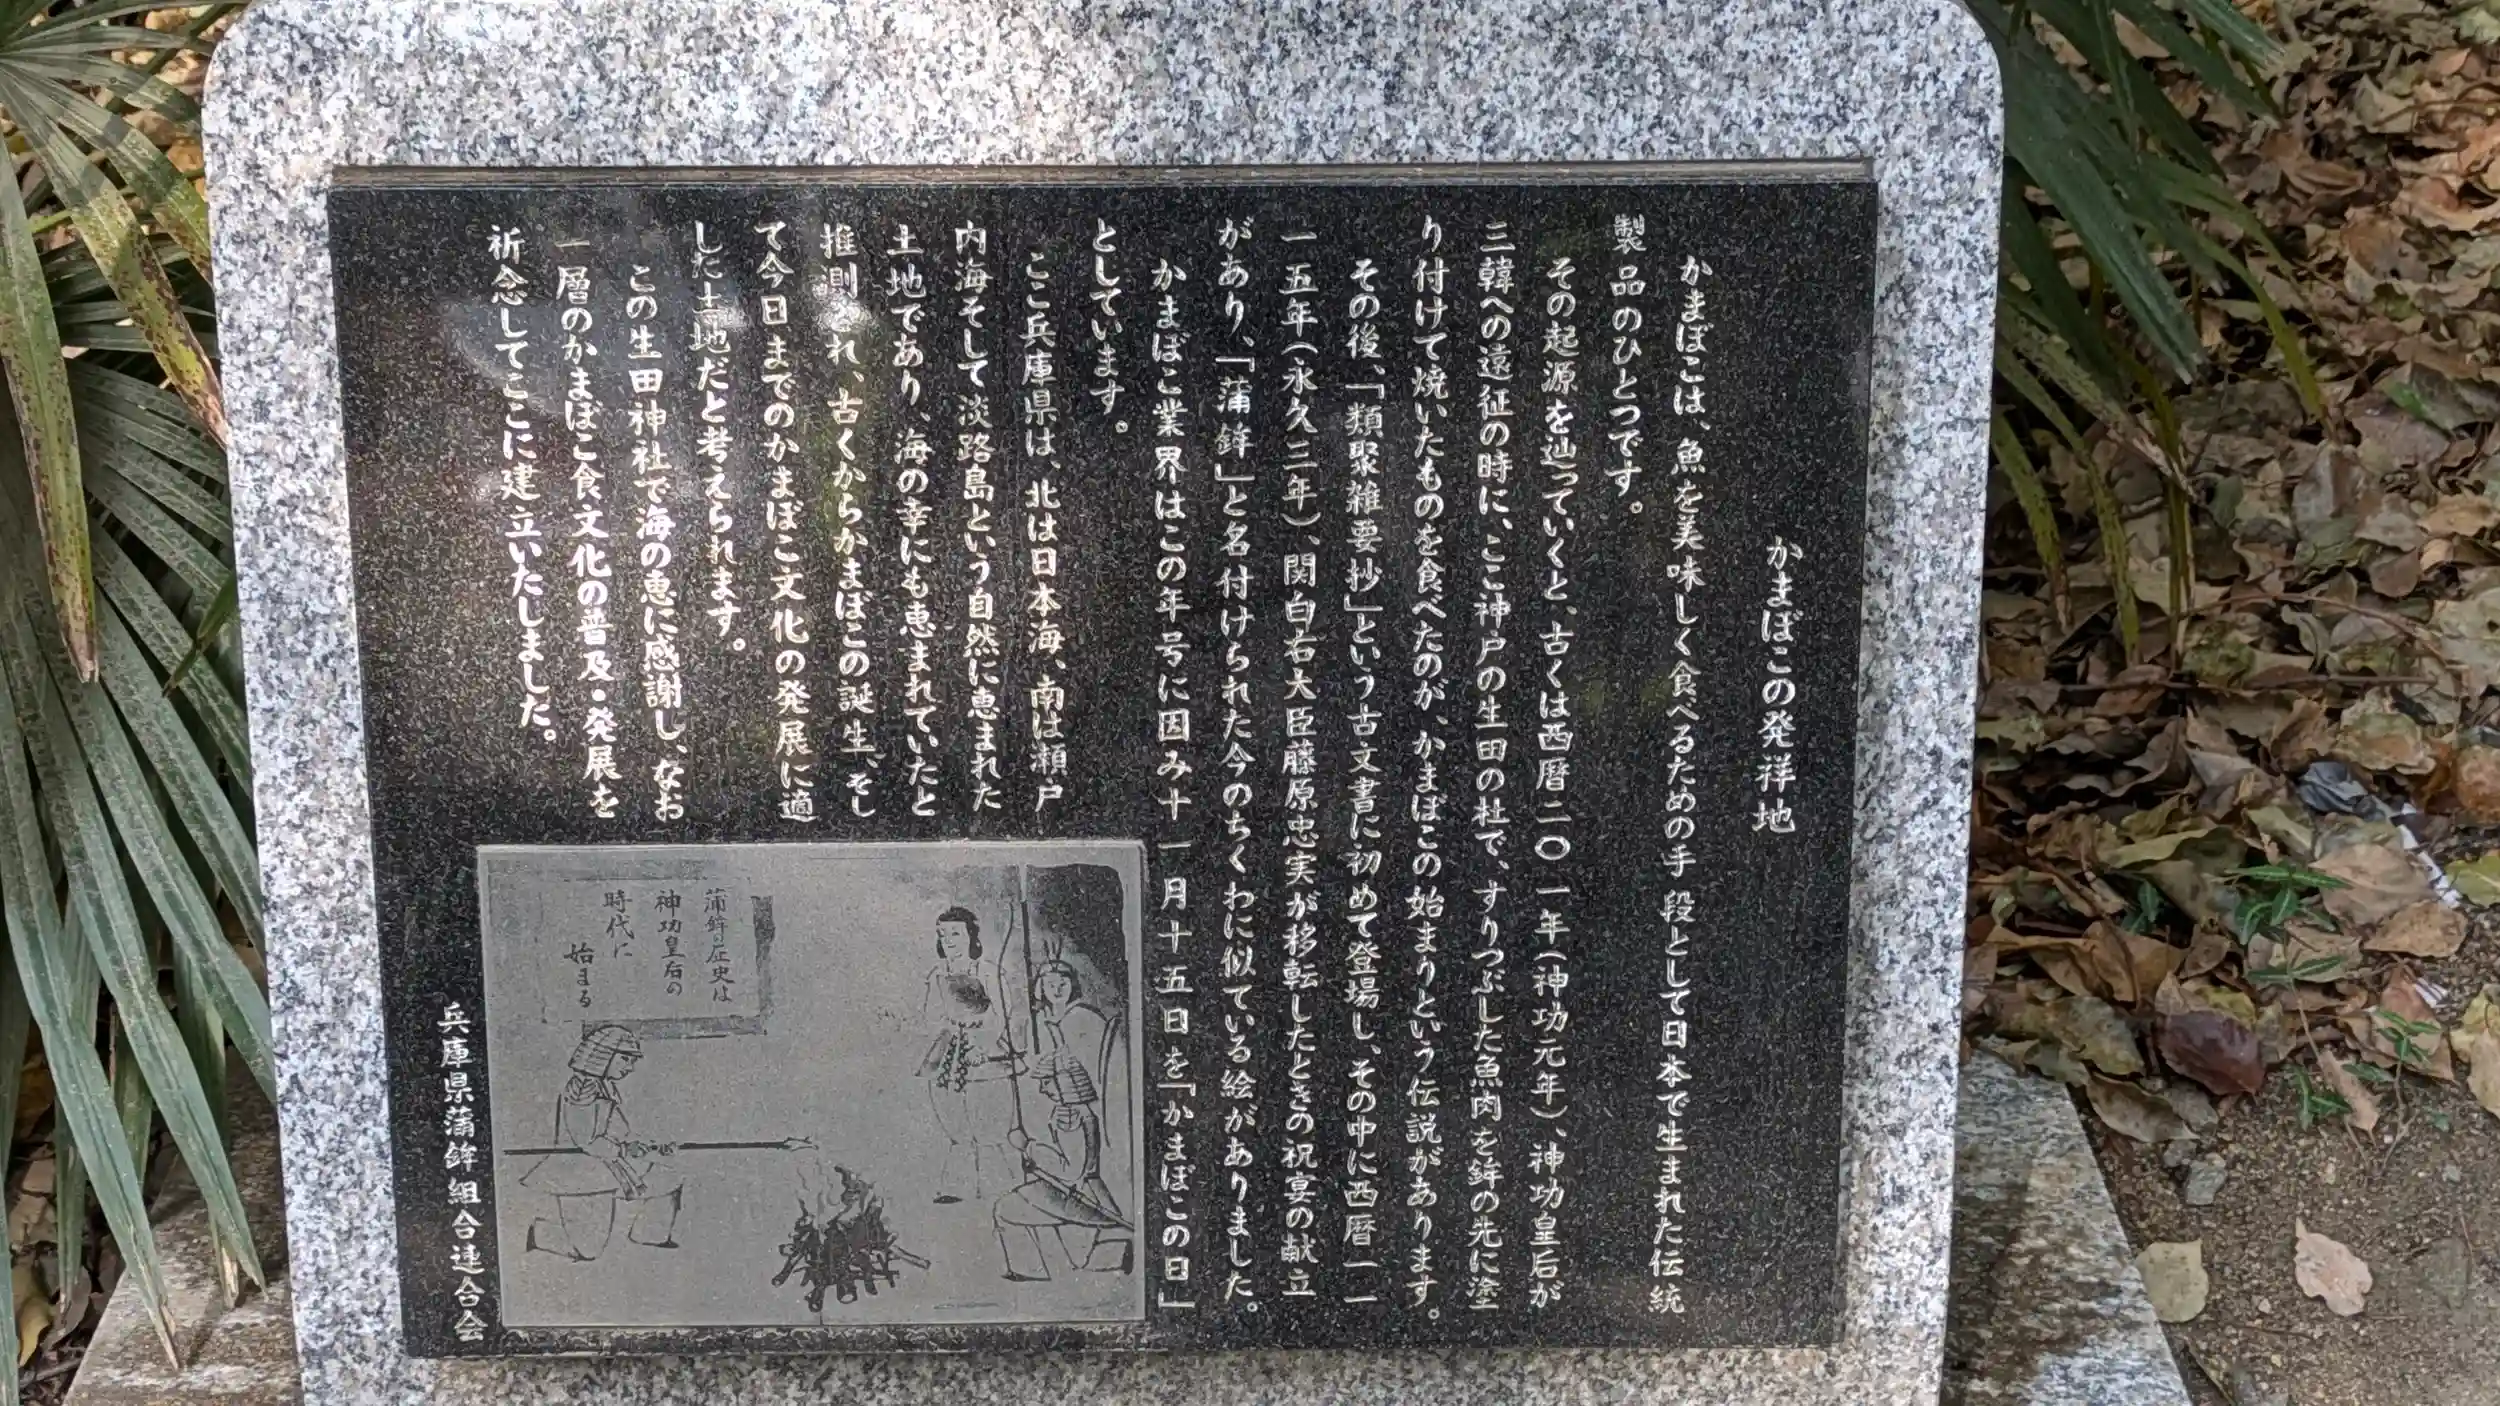 かまぼこの発祥地
かまぼこは、魚を美味しく食べるための手段として日本で生まれた伝統
製品のひとつです。
その起源を辿っていくと、古くは西暦二〇一年（神功元年）、神功皇后が
三韓への遠征の時に、ここ神戸の生田の杜で、すりつぶした魚肉を鉾の先に塗
り付けて焼いたものを食べたのが、かまぼこの始まりという伝説があります。
その後、「類聚雑要抄」という古文書に初めて登場し、その中に西暦一一
一五年（永久三年）、関白右大臣藤原忠実が移転したときの祝宴の献立
があり、「蒲鉾」と名付けられた今のちくわに似ている絵がありました。
かまぼこ業界はこの年号に因み十一月十五日を「かまぼこの日」
としています。
ここ兵庫県は、北は日本海、南は瀬戸
内海そして淡路島という自然に恵まれた
土地であり、海の幸にも恵まれていたと
推測され、古くからかまぼこの誕生、そし
て今日までのかまぼこ文化の発展に適
した土地だと考えられます。
この生田神社で海の恵に感謝し、なお
一層のかまぼこ食文化の普及・発展を
祈念してここに建立いたしました。
兵庫県蒲鉾組合連合会
蒲鉾歴史は
神功皇后の
時代に
始まる